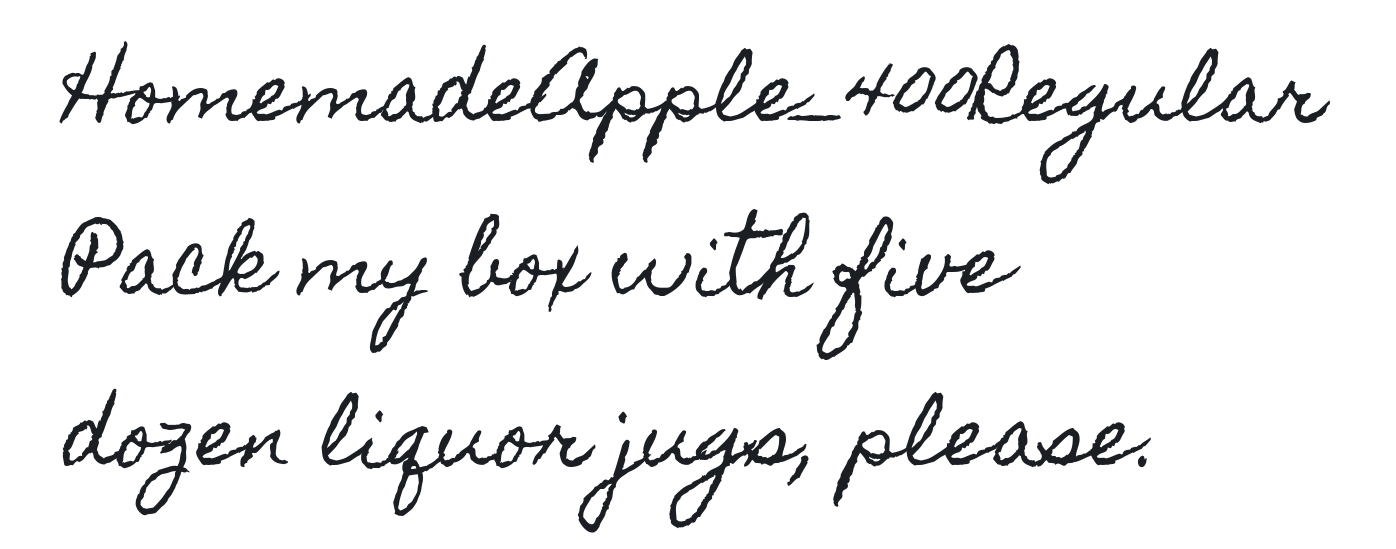 HomemadeApple_400Regular
Pack my box with five
dozen liquor jugs, please.